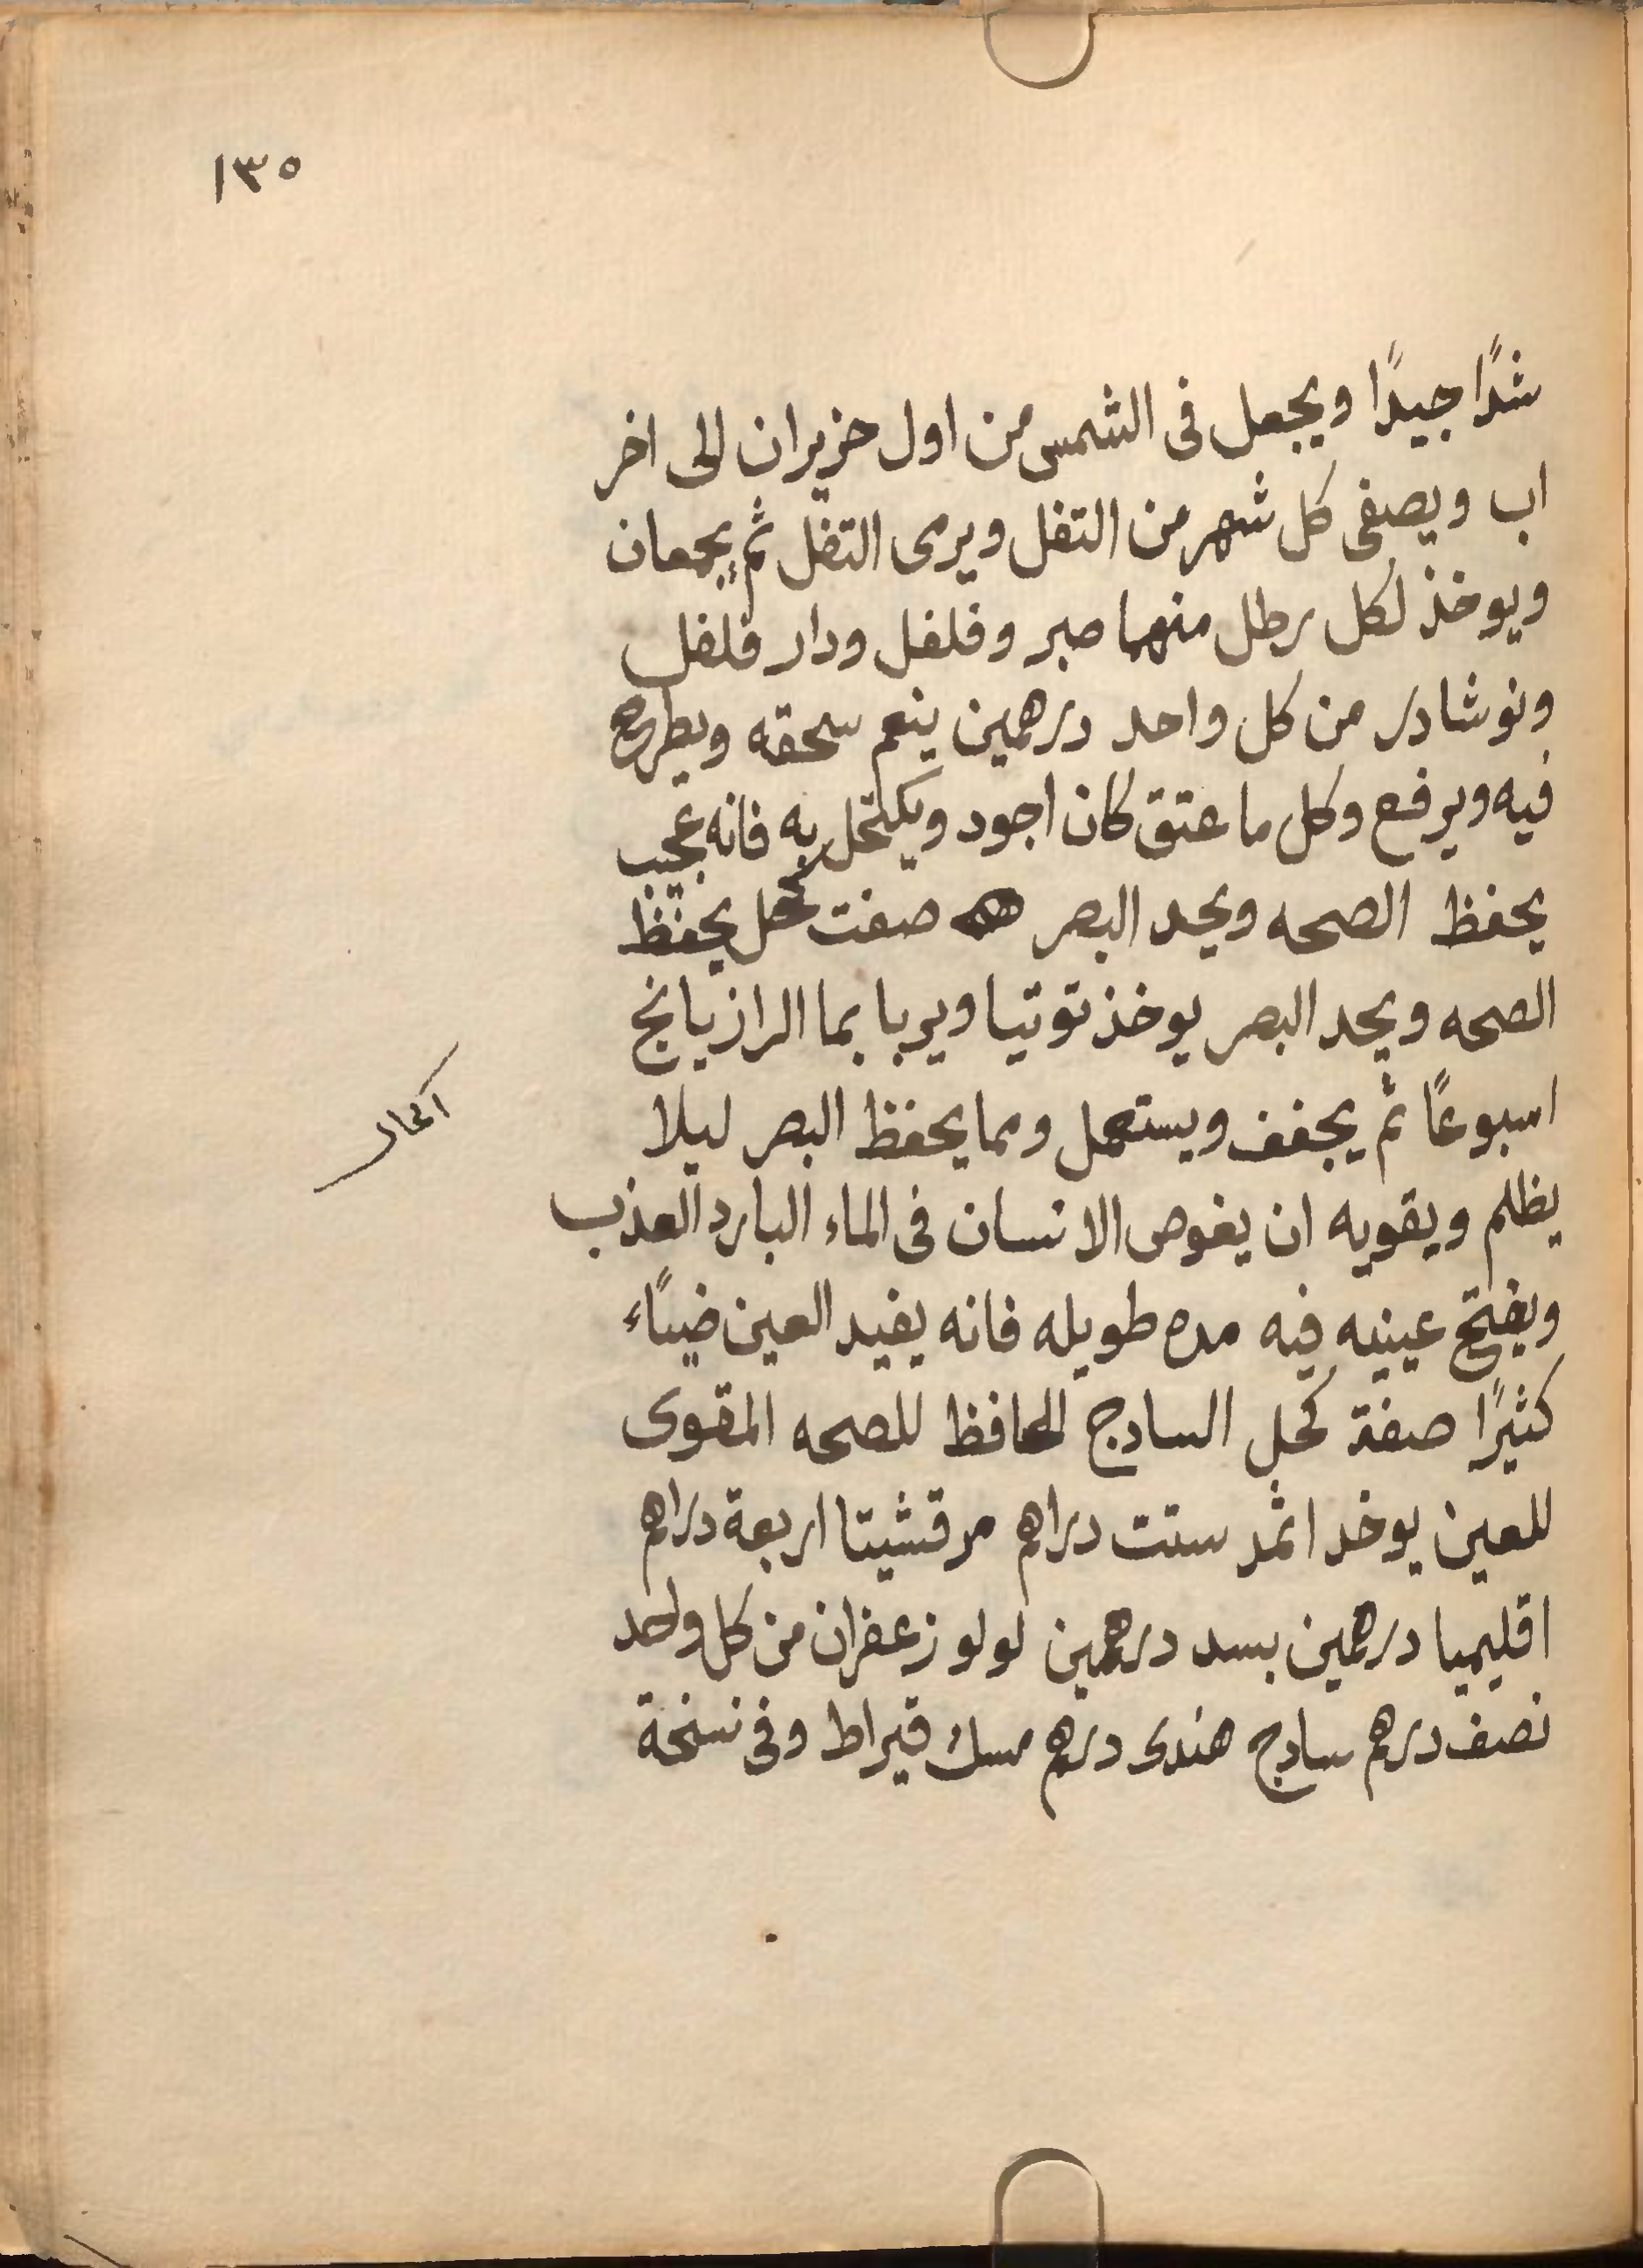 ١٣٥
شدًا جيدًا ويجعل فى الشمس من اول حزيران الى اخر
اب ويصفى كل شهر من التفل ويرمى التفل ثم يجمعان
ويوخذ لكل رطل منهما صبر وفلفل ودار فلفل
ونوشادر من كل واحد درهمين ينعم سحقه ويطرح
فيه ويرفع وكل ما عتق كان اجود ويكتحل به فانه عجيب
يحفظ الصحه ويحد البصر صفت كحل يحفظ
الصحه ويحد البصر يوخذ توتيا ويربا بما الرازيانج
اسبوعًا ثم يجفف ويستعمل ومما يحفظ البصر ليلا
يظلم ويقويه ان يغوص الانسان فى الماء البارد العذب
ويفتح عينيه فيه مده طويله فانه يفيد العين ضياًء
كثيرًا صفة كحل السادج الحافظ للصحه المقوى
للعين يوخد اثمد ستت دراهم مرقشيتا اربعة دراهم
اقليميا درهمين بسد درهمين لولو زعفران من كل واحد
نصف درهم سادج هندى درهم مسك قيراط وفى نسخة